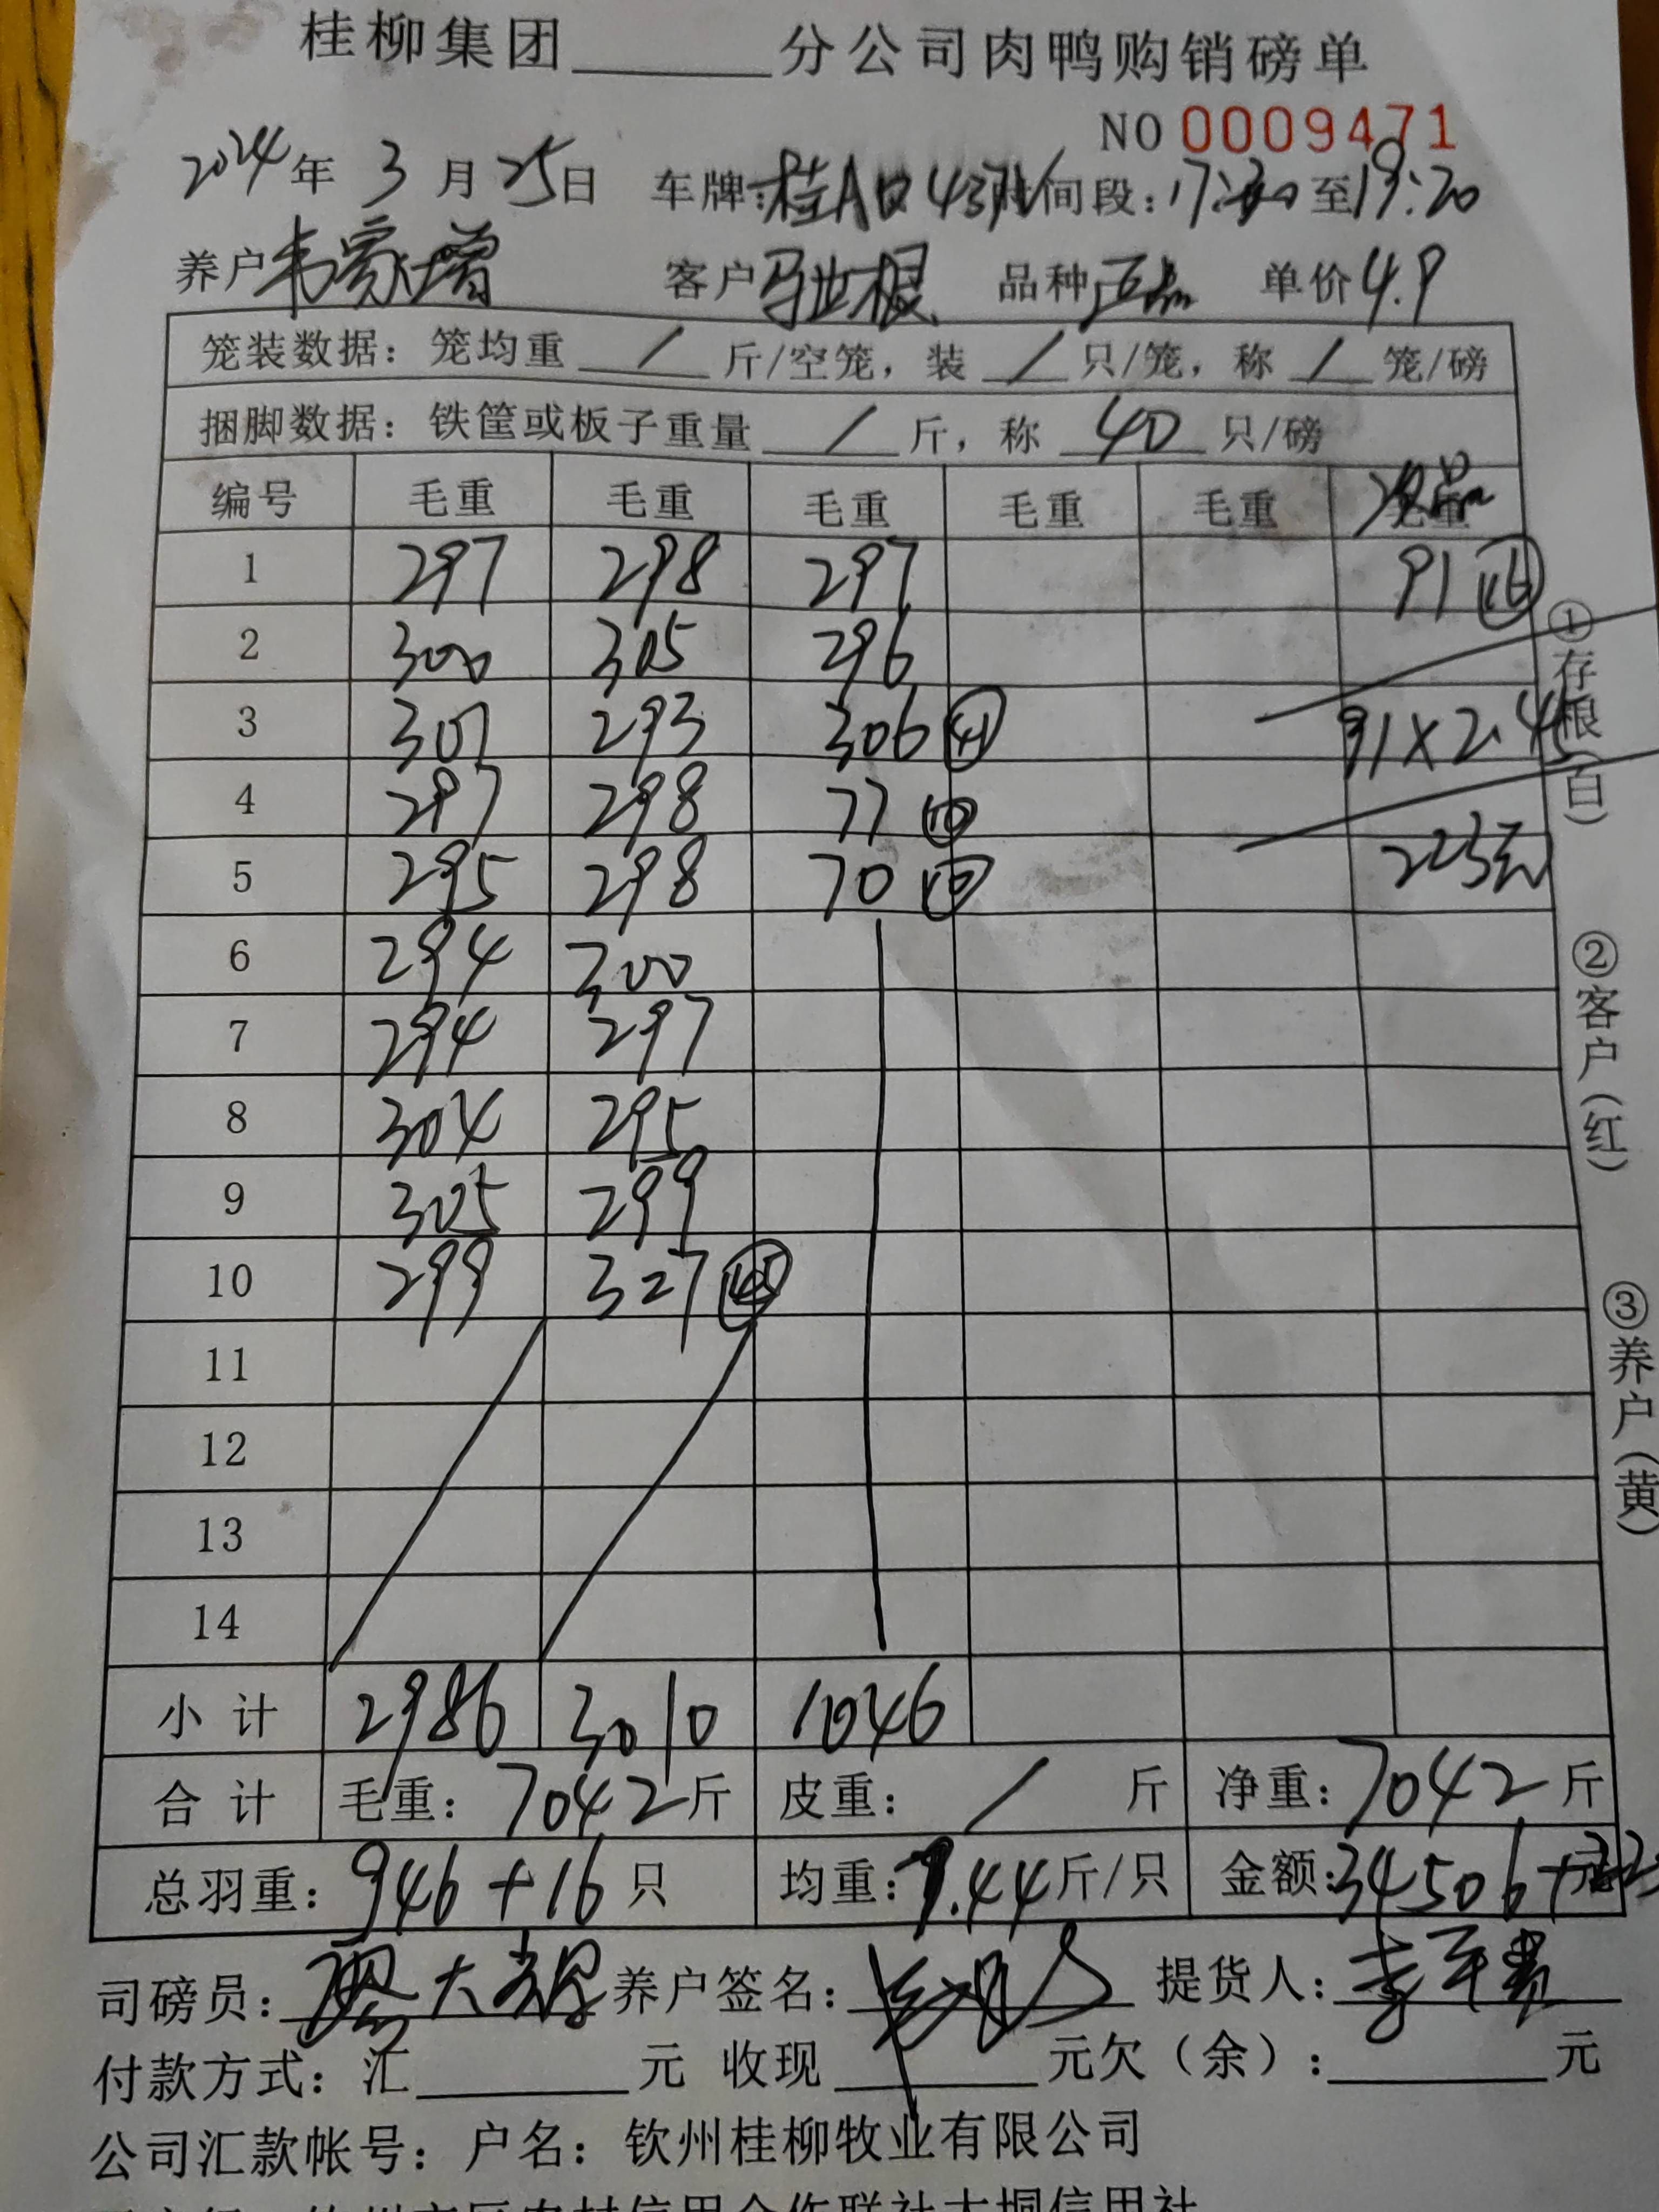 桂柳集团______分公司肉鸭购销磅单
NO 0009471
2024年 3 月 25日 车牌:桂A 间段:17: 至19:20
养户韦家增 客户马业根 品种正品 单价4.9
笼装数据：笼均重 / 斤/空笼，装 / 只/笼，称 / 笼/磅
捆脚数据：铁筐或板子重量 / 斤，称 40 只/磅
编号 毛重 毛重 毛重 毛重 毛重 毛重 次品
1 297 298 297 91 (16)
2 300 305 296
3 301 293 306 (41) 91×2.45
4 297 298 77 (10)
5 295 298 70 (10) 223元
6 294 300
7 294 297
8 304 295
9 305 299
10 299 327
11
12
13
14
小计 2986 3010 1046
合计 毛重：7042斤 皮重： / 斤 净重：7042斤
总羽重：946+16 只 均重：7.44斤/只 金额：34506+
司磅员： 养户签名： 提货人：
付款方式：汇______元 收现______元欠（余）：______元
公司汇款帐号：户名：钦州桂柳牧业有限公司
①存根（白）
②客户（红）
③养户（黄）